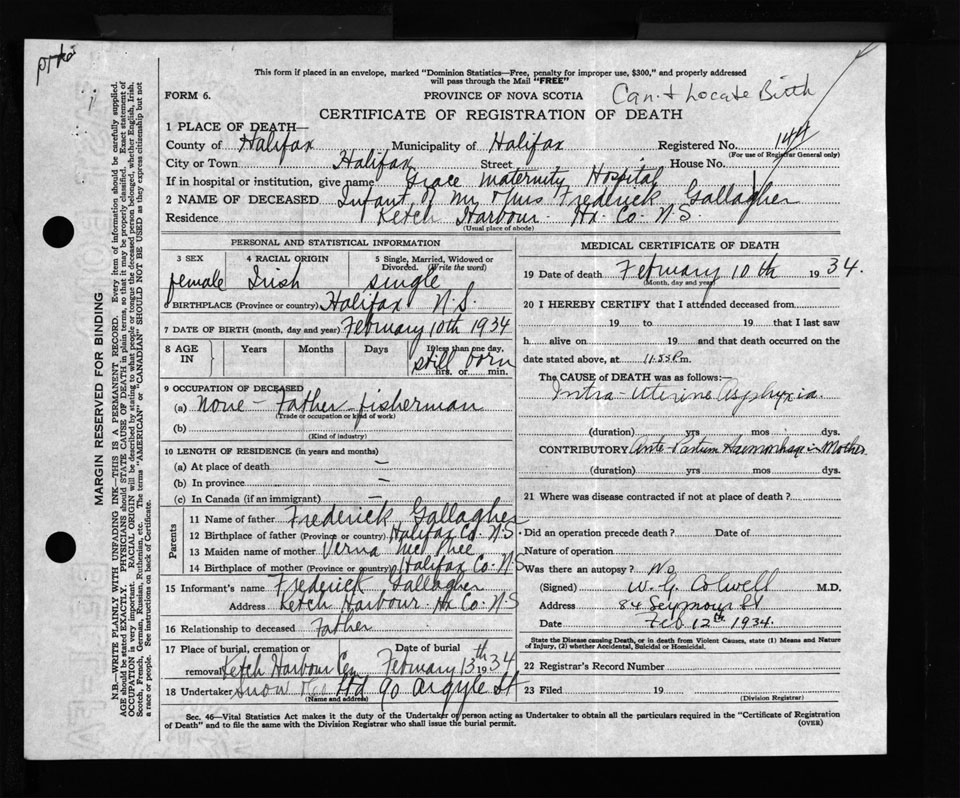 This form if placed in an envelope, marked "Dominion Statistics—Free, penalty for improper use, $300," and properly addressed
will pass through the Mail "FREE"
FORM 6.
PROVINCE OF NOVA SCOTIA
Can't Locate Birth
CERTIFICATE OF REGISTRATION OF DEATH
1 PLACE OF DEATH—
County of Halifax Municipality of Halifax Registered No. 144
(For use of Registrar General only)
City or Town Halifax Street House No.
If in hospital or institution, give name Grace Maternity Hospital
2 NAME OF DECEASED Infant of Mr & Mrs Frederick Gallagher
Residence Ketch Harbour Hx. Co. N.S.
(Usual place of abode)
PERSONAL AND STATISTICAL INFORMATION
3 SEX 4 RACIAL ORIGIN 5 Single, Married, Widowed or
Divorced. (Write the word)
female Irish single
6 BIRTHPLACE (Province or country) Halifax N.S.
7 DATE OF BIRTH (month, day and year) February 10th 1934
8 AGE IN Years Months Days If less than one day.
still born
hrs. or min.
9 OCCUPATION OF DECEASED
(a) None - Father - fisherman
(Trade or occupation or kind of work)
(b)
(Kind of industry)
10 LENGTH OF RESIDENCE (in years and months)
(a) At place of death —
(b) In province —
(c) In Canada (if an immigrant) —
Parents
11 Name of father Frederick Gallagher
12 Birthplace of father (Province or country) Halifax Co. N.S.
13 Maiden name of mother Verna McPhee
14 Birthplace of mother (Province or country) Halifax Co. N.S
15 Informant's name Frederick Gallagher
Address Ketch Harbour Hx Co. N.S
16 Relationship to deceased Father
17 Place of burial, cremation or Date of burial
removal Ketch Harbour Cem February 13th 1934
18 Undertaker Snow & Co Ltd 90 Argyle St
(Name and address)
MEDICAL CERTIFICATE OF DEATH
19 Date of death February 10th 1934.
(Month, day and year)
20 I HEREBY CERTIFY that I attended deceased from
19 to 19 that I last saw
h alive on 19 and that death occurred on the
date stated above, at 11.55 P.m.
The CAUSE of DEATH was as follows:—
Intra-Uterine Asphyxia.
(duration) yrs mos dys.
CONTRIBUTORY Ante-Partum Haemorrhage in Mother.
(duration) yrs mos dys.
21 Where was disease contracted if not at place of death?
Did an operation precede death? Date of
Nature of operation
Was there an autopsy? No
(Signed) W. G. Colwell M.D.
Address 84 Seymour St
Date Feb 12th 1934.
State the Disease causing Death, or in death from Violent Causes, state (1) Means and Nature
of Injury, (2) whether Accidental, Suicidal or Homicidal.
22 Registrar's Record Number
23 Filed 19
(Division Registrar)
Sec. 46—Vital Statistics Act makes it the duty of the Undertaker or person acting as Undertaker to obtain all the particulars required in the "Certificate of Registration
of Death" and to file the same with the Division Registrar who shall issue the burial permit. (OVER)
MARGIN RESERVED FOR BINDING
N.B.—WRITE PLAINLY WITH UNFADING INK—THIS IS A PERMANENT RECORD. Every item of information should be carefully supplied.
AGE should be stated EXACTLY. PHYSICIANS should STATE CAUSE OF DEATH in plain terms, so that it may be properly classified. Exact statement of
OCCUPATION is very important. RACIAL ORIGIN will be described by stating to what people or tongue the deceased person belonged, whether English, Irish,
Scotch, French, German, Russian, Ruthenian, etc. The terms "AMERICAN" or "CANADIAN" SHOULD NOT BE USED as they express citizenship but not
a race or people. See instructions on back of Certificate.